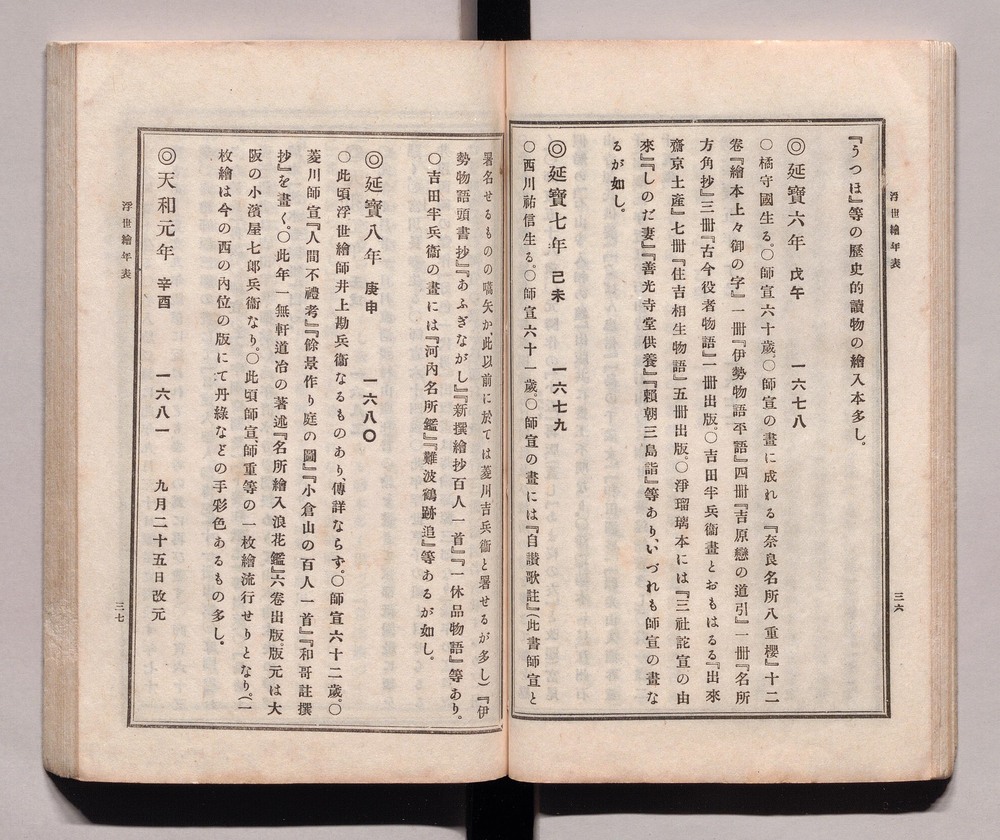 浮世繪年表
三六
『うつほ』等の歴史的讀物の繪入本多し。
◎延寶六年 戊午 一六七八
〇橘守國生る。〇師宣六十歲。〇師宣の畫に成れる『奈良名所八重櫻』十二
卷『繪本上々御の字』一册『伊勢物語平語』四册『吉原戀の道引』一册『名所
方角抄』三册『古今役者物語』一册出版。〇吉田半兵衞畫とおもはるる『出來
齋京土產』七册『住吉相生物語』五册出版。〇淨瑠璃本には『三社詫宣の由
來』『しのだ妻』『善光寺堂供養』『賴朝三島詣』等あり、いづれも師宣の畫な
るが如し。
◎延寶七年 己未 一六七九
〇西川祐信生る。〇師宣六十一歲。〇師宣の畫には『自讃歌註』(此書師宣と
署名せるものの嚆矢か、此以前に於ては菱川吉兵衞と署せるが多し)『伊
勢物語頭書抄』『あふぎながし』『新撰繪抄百人一首』『一休品物語』等あり。
〇吉田半兵衞の畫には『河內名所鑑』『難波鶴跡追』等あるが如し。
◎延寶八年 庚申 一六八〇
〇此頃浮世繪師井上勘兵衞なるものあり、傳詳ならず。〇師宣六十二歲。〇
菱川師宣『人間不禮考』『餘景作り庭の圖』『小倉山の百人一首』『和哥註撰
抄』を畫く。〇此年一無軒道冶の著述『名所繪入浪花鑑』六卷出版。版元は大
阪の小濱屋七郎兵衞なり。〇此頃師宣、師重等の一枚繪流行せりとなり。(一
枚繪は今の西の內位の版にて丹綠などの手彩色あるもの多し。
◎天和元年 辛酉 一六八一 九月二十五日改元
浮世繪年表
三七